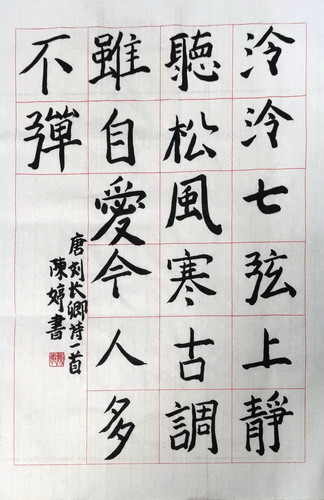 泠泠七弦上靜
聽松風寒古調
雖自愛今人多
不彈
唐刘长卿诗一首
陳婷書